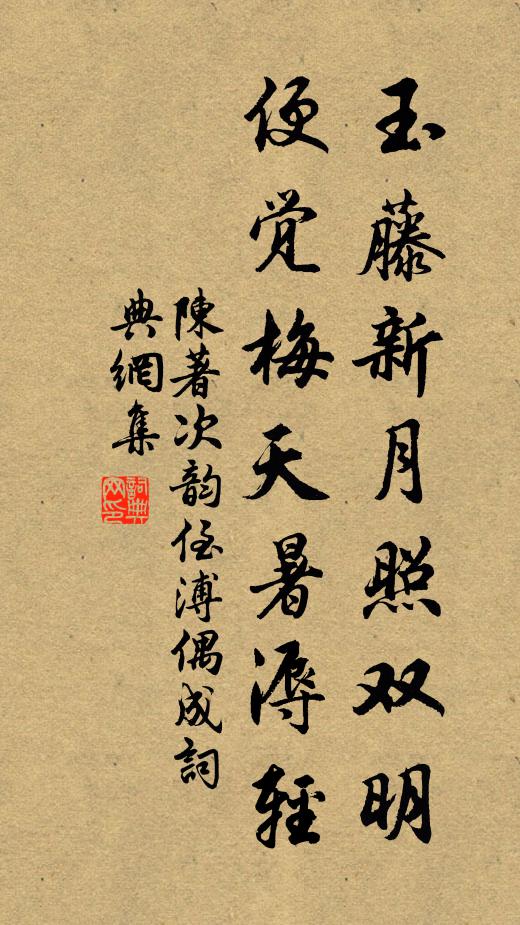 玉藤新月照双明
便觉梅天暑溽轻
陳著次韵侄溥偶成詞
典網集
詞典网印